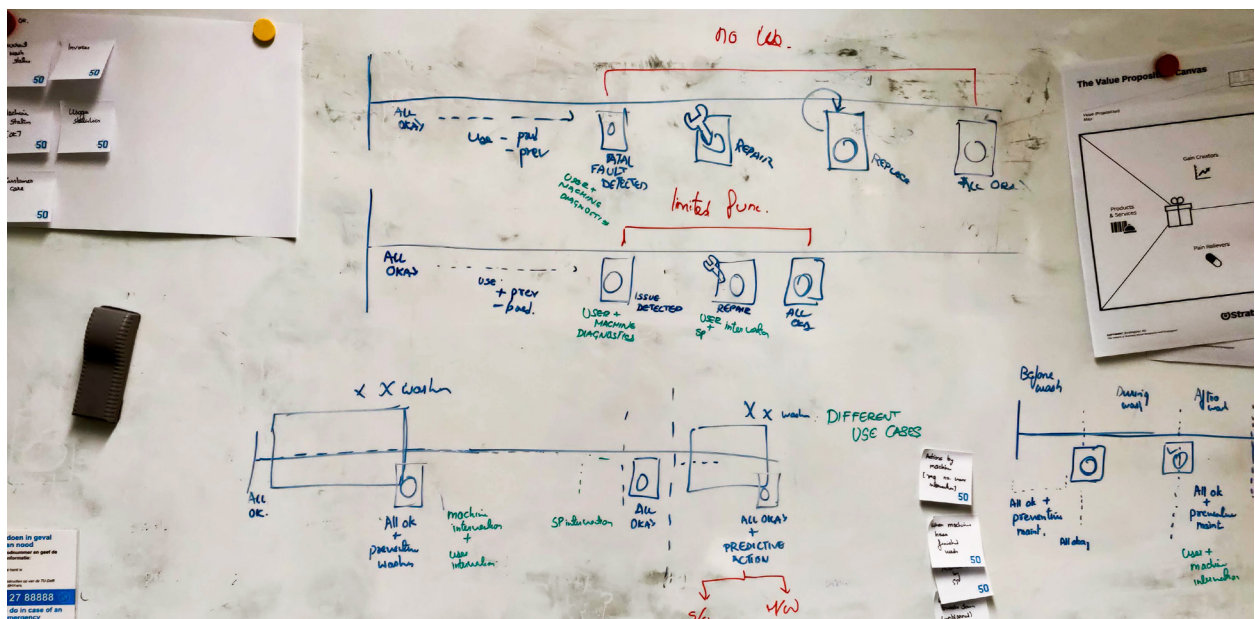 OK.
50
Invoice
50
50
Usage
50
Customer
care
50
no Use.
ALL
OKAY
Use - pred
- prev
FATAL
FAULT
DETECTED
USER +
MACHINE
DIAGNOSTICS
REPAIR
REPLACE
ALL OKAY
limited func.
ALL
OKAY
use
+ prev
- pred.
ISSUE
DETECTED
USER +
MACHINE
DIAGNOSTICS
REPAIR
USER intervention
SP+
ALL
OKAY
The Value Proposition Canvas
Value Proposition
Map
Gain Creators
Products
& Services
Pain Relievers
Strat
x X washes
ALL
OK.
All ok
+
preventive
washes
machine
intervention
+
user
intervention
SP intervention
ALL
OKAY
X x washes
DIFFERENT
USE CASES
ALL OKAY
+
PREDICTIVE
ACTION
S/W
H/W
Actions by
machine
[req. no user
intervention]
50
when machine
has
finished
wash
50
50
Before
wash
During
wash
After
wash
All ok +
preventive
maint.
All okay
All ok
+
preventive
maint
User +
machine
intervention
doen in geval
an nood
27 88888
do in case of an
emergency